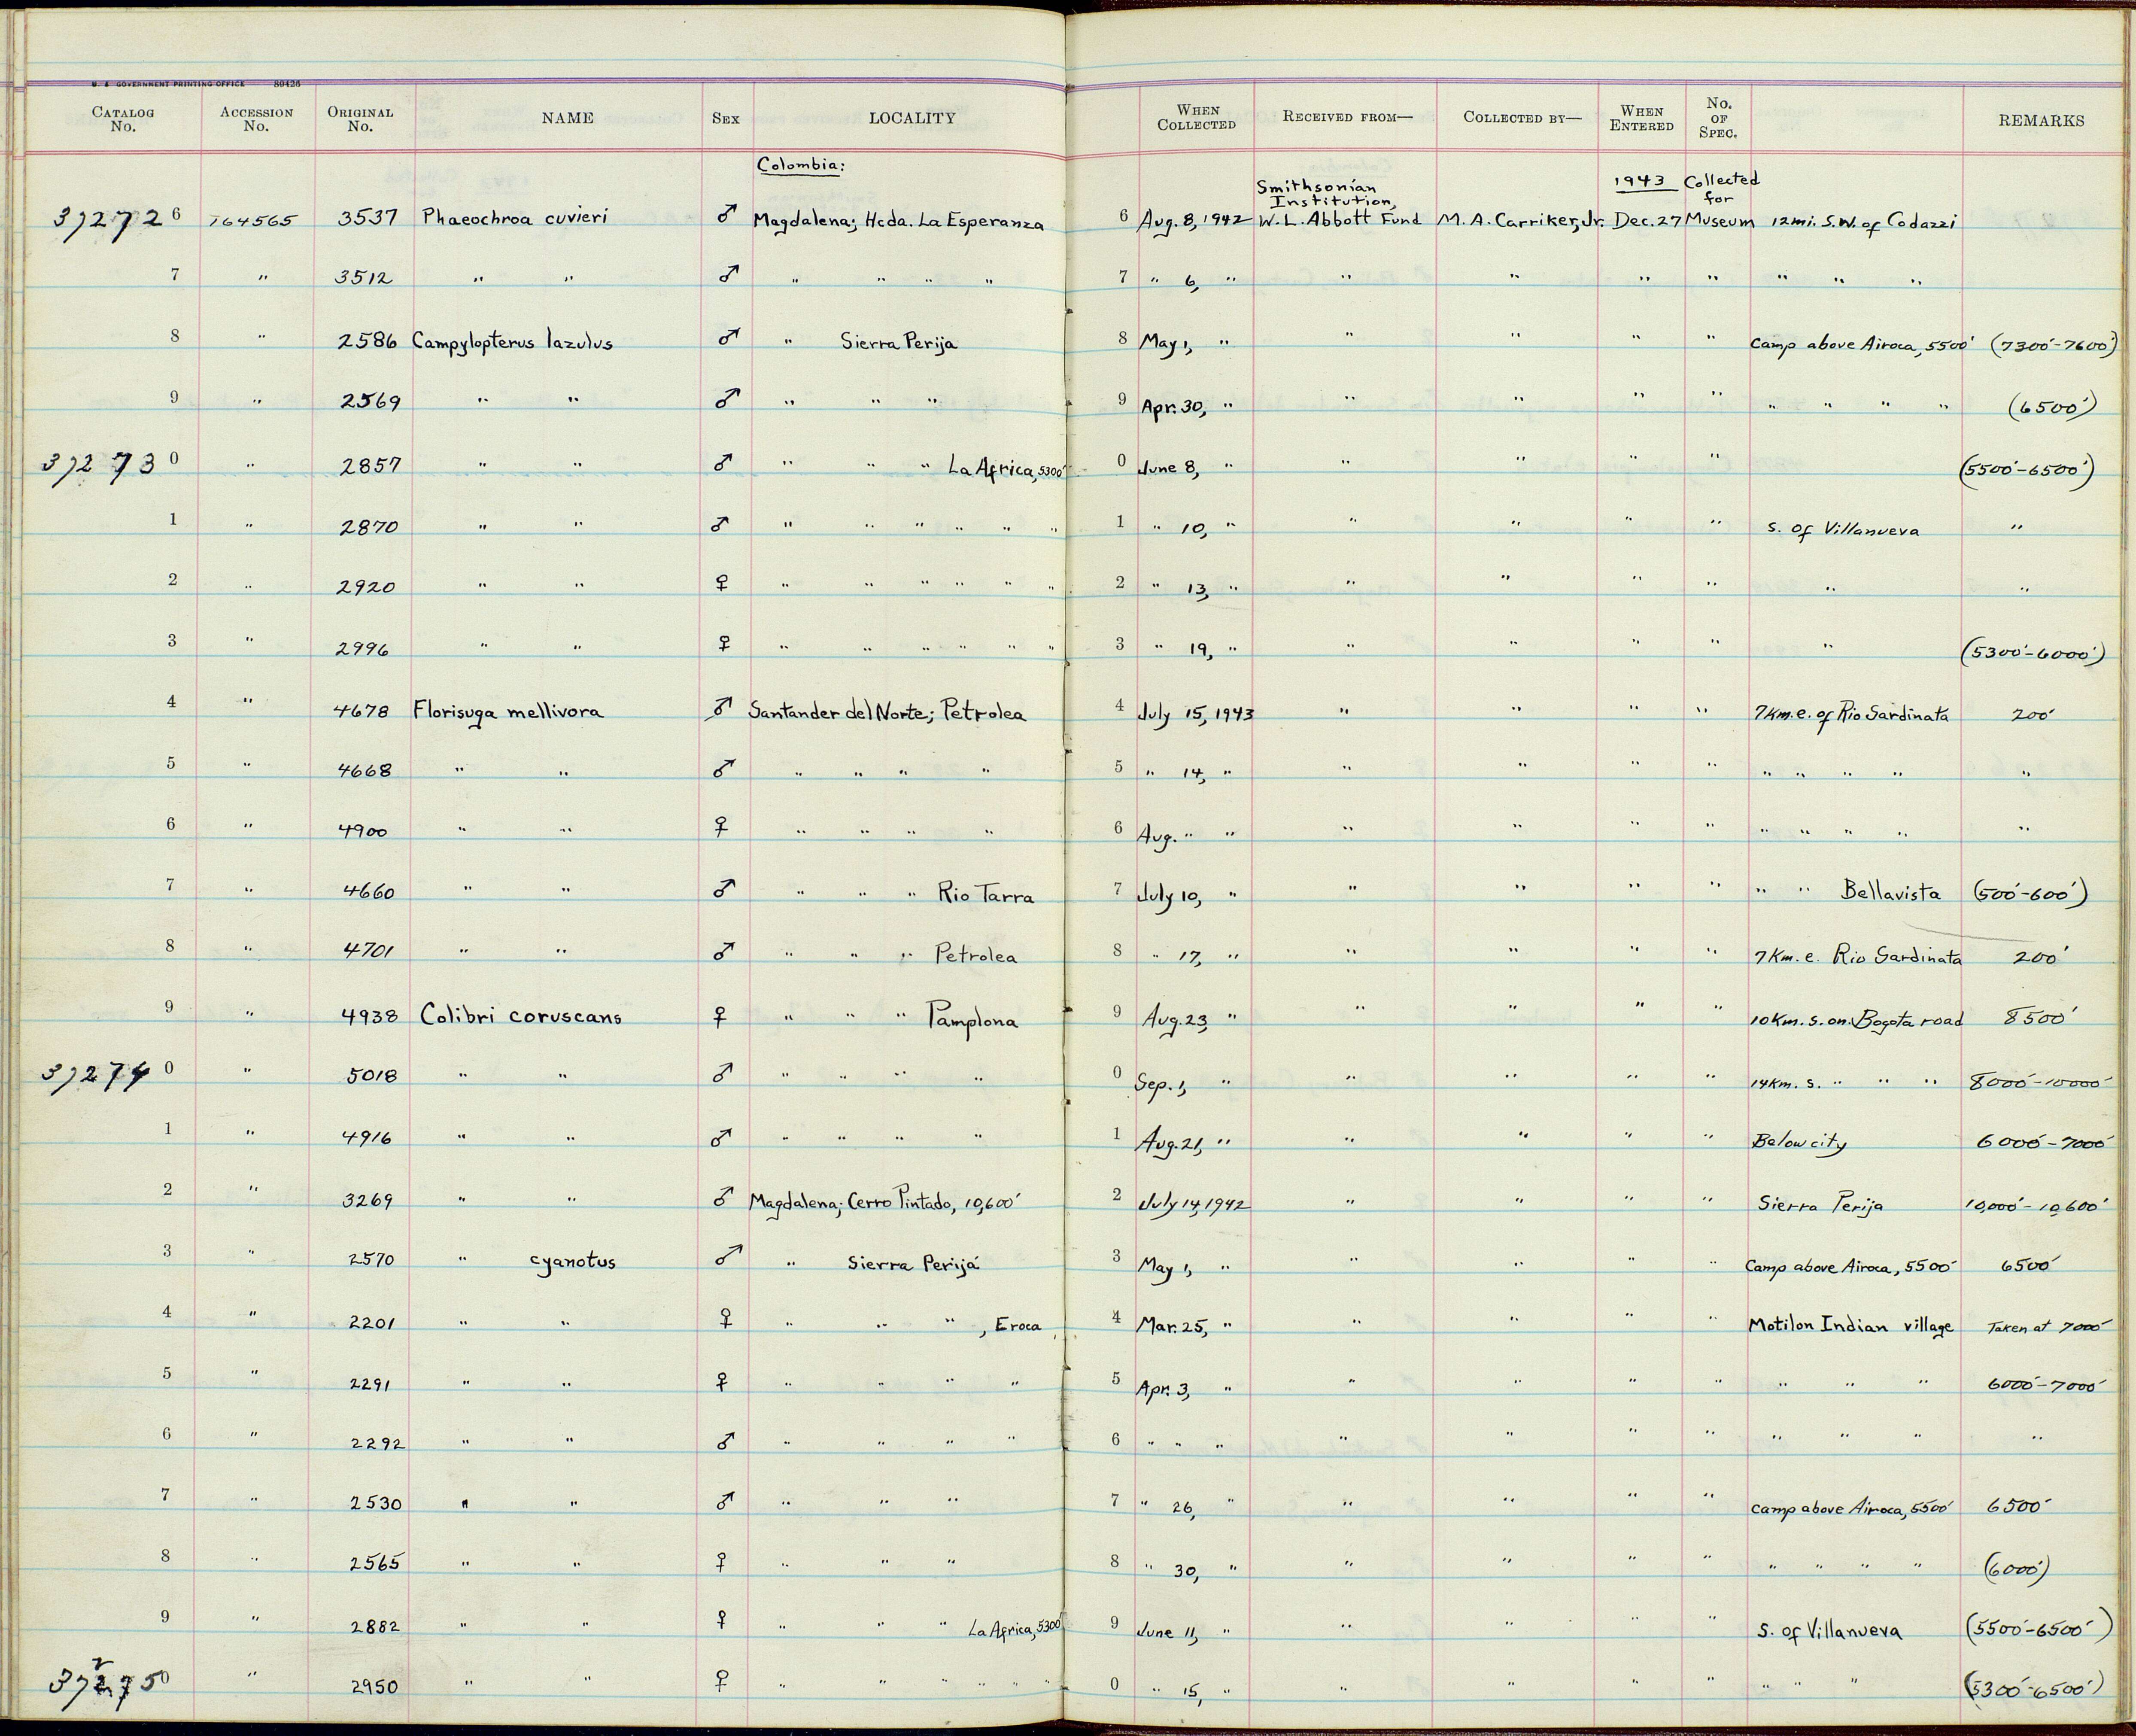 U. S. GOVERNMENT PRINTING OFFICE 89426
CATALOG No. ACCESSION No. ORIGINAL No. NAME SEX LOCALITY WHEN COLLECTED RECEIVED FROM— COLLECTED BY— WHEN ENTERED No. OF SPEC. REMARKS
Colombia: Smithsonian Institution, 1943 Collected for
372726 164565 3537 Phaeochroa cuvieri ♂ Magdalena; Hcda. La Esperanza 6 Aug. 8, 1942 W. L. Abbott Fund M. A. Carriker, Jr. Dec. 27 Museum 12 mi. S.W. of Codazzi
7 " 3512 " " ♂ " " " " 7 " 6, " " " " " " " "
8 " 2586 Campylopterus lazulus ♂ " Sierra Perija 8 May 1, " " " " " Camp above Airoca, 5500' (7300'-7600')
9 " 2569 " " ♂ " " " 9 Apr. 30, " " " " " " " " " (6500')
372730 " 2857 " " ♂ " " " La Africa, 5300' 0 June 8, " " " " " (5500'-6500')
1 " 2870 " " ♂ " " " " " " 1 " 10, " " " " " S. of Villanueva "
2 " 2920 " " ♀ " " " " " " 2 " 13, " " " " " " "
3 " 2996 " " ♀ " " " " " " 3 " 19, " " " " " " (5300'-6000')
4 " 4678 Florisuga mellivora ♂ Santander del Norte; Petrolea 4 July 15, 1943 " " " " 7 Km. e. of Rio Sardinata 200'
5 " 4668 " " ♂ " " " " 5 " 14, " " " " " " " " " "
6 " 4900 " " ♀ " " " " 6 Aug. " " " " " " " " " " "
7 " 4660 " " ♂ " " " Rio Tarra 7 July 10, " " " " " " " Bellavista (500'-600')
8 " 4701 " " ♂ " " " Petrolea 8 " 17, " " " " " 7 Km. e. Rio Sardinata 200'
9 " 4938 Colibri coruscans ♀ " " " Pamplona 9 Aug. 23, " " " " " 10 Km. s. on Bogota road 8500'
372740 " 5018 " " ♂ " " " " 0 Sep. 1, " " " " " 14 Km. s. " " " 8000'-10000'
1 " 4916 " " ♂ " " " " 1 Aug. 21, " " " " " Below city 6000'-7000'
2 " 3269 " " ♂ Magdalena; Cerro Pintado, 10,600' 2 July 14, 1942 " " " " Sierra Perija 10,000'-10,600'
3 " 2570 " cyanotus ♂ " Sierra Perijá 3 May 1, " " " " " Camp above Airoca, 5500' 6500'
4 " 2201 " " ♀ " " " , Eroca 4 Mar. 25, " " " " " Motilon Indian village Taken at 7000'
5 " 2291 " " ♀ " " " " 5 Apr. 3, " " " " " " " " 6000'-7000'
6 " 2292 " " ♂ " " " " 6 " " " " " " " " " " "
7 " 2530 " " ♂ " " " 7 " 26, " " " " " camp above Airoca, 5500' 6500'
8 " 2565 " " ♀ " " " 8 " 30, " " " " " " " " " (6000')
9 " 2882 " " ♀ " " " La Africa, 5300' 9 June 11, " " " " " S. of Villanueva (5500'-6500')
372750 " 2950 " " ♀ " " " " " " 0 " 15, " " " " " " " " (5300'-6500')